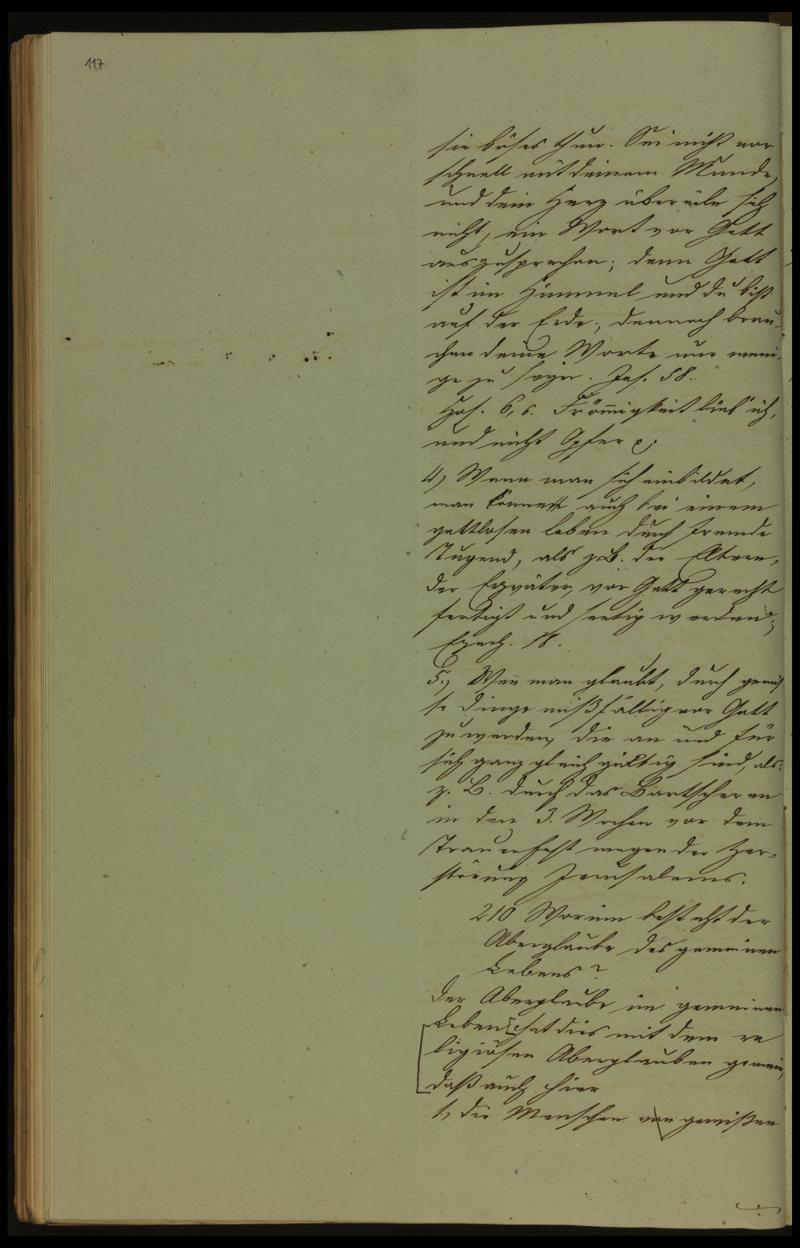 117
sie böses thun. Sei nicht vor
schnell mit deinem Munde,
und dein Herz übereile sich
nicht, ein Wort vor Gott
auszusprechen; denn Gott
ist im Himmel und du bist
auf der Erde; dennoch brau-
chen deine Worte nur weni-
ge zu seyn. Jes. 58.
Hos. 6, 6. Frömigkeit lieb' ich,
und nicht Opfer
4) Wenn man sich einbildet,
man könne auch bei einem
gottlosen Leben durch fremde
Tugend, als z.B. der Eltern,
der Erzväter, vor Gott gerecht
fertigt und seelig werden;
Ezech. 18.
5.) Weñ man glaubt, durch gewis
se Dinge mißfällig vor Gott
zu werden, die an und für
sich ganz gleichgültig sind, als:
z. B. durch das Bartscheren
in den 3. Wochen vor dem
Trauerfest wegen der Zer-
störung Jerusalems.
210 Worinn besteht der
Aberglaube des gemeinen
Lebens?
Der Aberglaube im gemeinen
Leben hat dies mit dem re
ligiösen Aberglauben gemein,
daß auch hier
1, die Menschen von gewißen